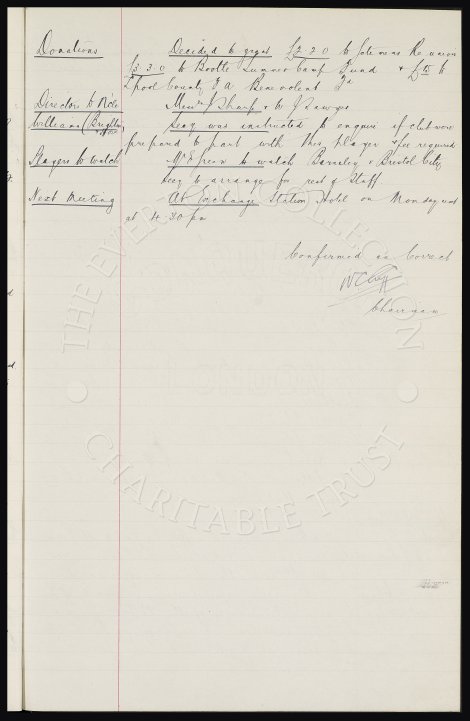 Donations Decided to grant £2.2.0 to Re union
£3.3.0 to Bootle Summer Camp Fund & £ to
L'pool County F A Benevolent Fd
Directors to Mess J Sharp & W J Sawyer
Williams (Brighton Secy was instructed to enquire if club were
prepared to part with this player & fee required
Players to watch Mr Green to watch Barnsley v Bristol City
Secy to arrange for rest of Staff
Next Meeting At Exchange Station Hotel on Monday next
at 4.30 pm
Confirmed as Correct
W C Cuff
Chairman
THE EVERTON COLLECTION
CHARITABLE TRUST